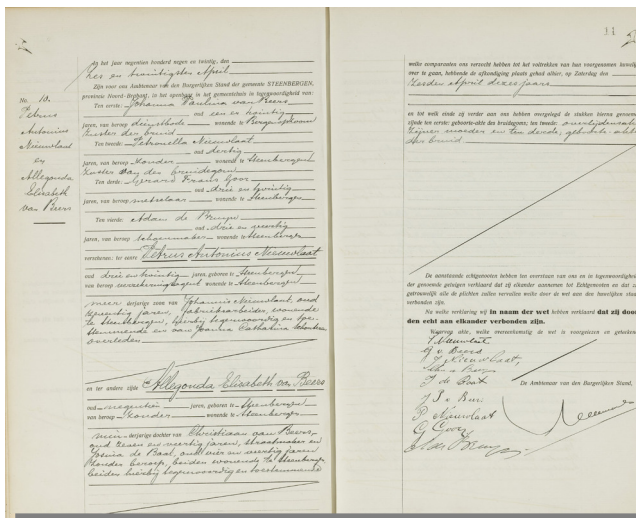 No. 10.
Petrus
Antonius
Nieuwlaat
en
Allegonda
Elisabeth
van Beers
In het jaar negentien honderd negen en twintig, den
zes en twintigsten April
Zijn voor ons Ambtenaar van den Burgerlijken Stand der gemeente STEENBERGEN,
provincie Noord-Brabant, in het openbaar in het gemeentehuis in tegenwoordigheid van:
Ten eerste: Johanna Paulina van Beers
oud een en twintig
jaren, van beroep dienstbode wonende te Bergen op Zoom
zuster der bruid
Ten tweede: Petronella Nieuwlaat
oud dertig
jaren, van beroep zonder wonende te Steenbergen
zuster van den bruidegom
Ten derde: Gerard Frans Goor
oud drie en twintig
jaren, van beroep metselaar wonende te Steenbergen
Ten vierde: Adam de Bruyn
oud drie en veertig
jaren, van beroep schoenmaker wonende te Steenbergen
verschenen: ter eenre Petrus Antonius Nieuwlaat
oud drie en twintig jaren, geboren te Steenbergen
van beroep wonende te Steenbergen
meerderjarige zoon van Johannis Nieuwlaat, oud
zeventig jaren, fabrieksarbeider, wonende
te Steenbergen, hierbij tegenwoordig en toe-
stemmende en van Joanna Catharina
overleden
en ter andere zijde Allegonda Elisabeth van Beers
oud negentien jaren, geboren te Steenbergen
van beroep zonder wonende te Steenbergen
minderjarige dochter van Christiaan van Beers,
oud zeven en veertig jaren, straatmaker en
Josina de Baat, oud vier en veertig jaren
zonder beroep, beiden wonende te Steenbergen
beiden hierbij tegenwoordig en toestemmend
11
welke comparanten ons verzocht hebben tot het voltrekken van hun voorgenomen huwelijk
over te gaan, hebbende de afkondiging plaats gehad alhier, op Zaterdag den
zesden April dezes jaars
en tot welk einde zij verder aan ons hebben overgelegd de stukken hierna genoemd
zijnde ten eerste: geboorte-akte des bruidegoms; ten tweede: overlijdensakte
zijner moeder en ten derde, geboorte-akte
der bruid.
De aanstaande echtgenooten hebben ten overstaan van ons en in tegenwoordigheid
der genoemde getuigen verklaard dat zij elkander aannemen tot Echtgenooten en dat zij
getrouwelijk alle de plichten zullen vervullen welke door de wet aan den huwelijken staat
verbonden zijn.
Na welke verklaring wij in naam der wet hebben verklaard dat zij door
den echt aan elkander verbonden zijn.
Waarvan akte, welke overeenkomstig de wet is voorgelezen en geteekend
P. Nieuwlaat
van Beers
J. Nieuwlaat,
van Beers
J de Baat
De Ambtenaar van den Burgerlijken Stand,
P. Nieuwlaat
G Goor
A de Bruyn